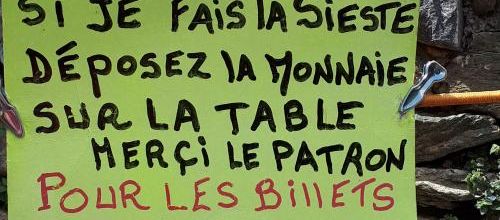 SI JE FAIS LA SIESTE
DÉPOSEZ LA MONNAIE
SUR LA TABLE
MERÇI LE PATRON
POUR LES BILLETS